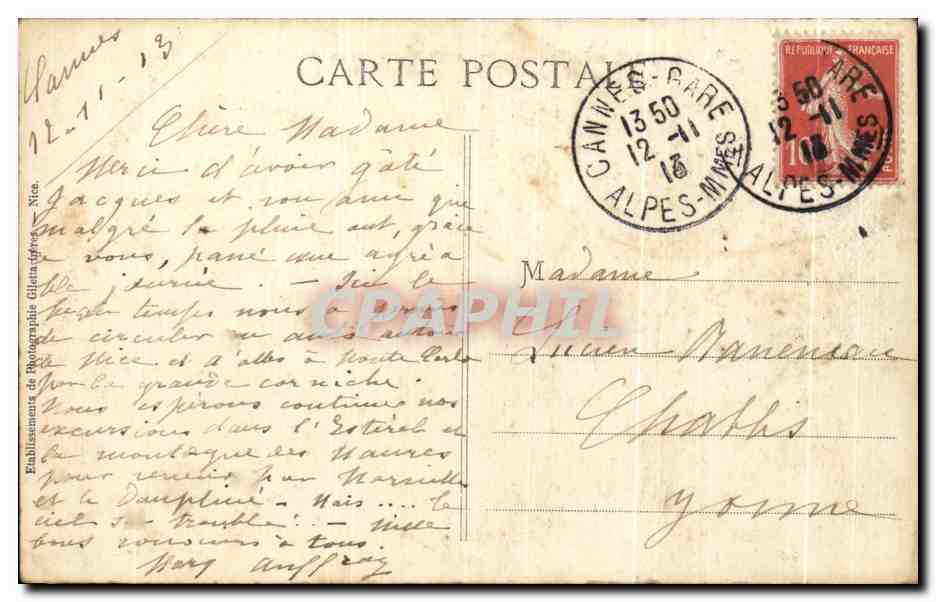 CARTE POSTALE
Cannes
12-11-13
Chère Madame
Merci d'avoir gâté
Jacques et vous aime que
malgré la pluie ont, grâce
à vous, passé une agréa
ble journée. - Ici le
beau temps nous a permis
de circuler en auto autour
de Nice et d'aller à Monte Carlo
par la grande corniche.
Nous espérons continuer nos
excursions dans l'Estérel et
la montagne des Maures
pour revenir par Marseille
et le Dauphiné - Mais .... le
ciel se trouble! - Mille
bons souvenirs à tous
Marg Auffray
Etablissements de Photographie Giletta frères, Nice.
CANNES-GARE
13 50
12 -11
13
ALPES-MMES
REPUBLIQUE FRANCAISE
10
POS
ARE
13 50
12 -11
13
ALPES-MMES
Madame
Lucien
Chablis
Yonne
CPAPHIL